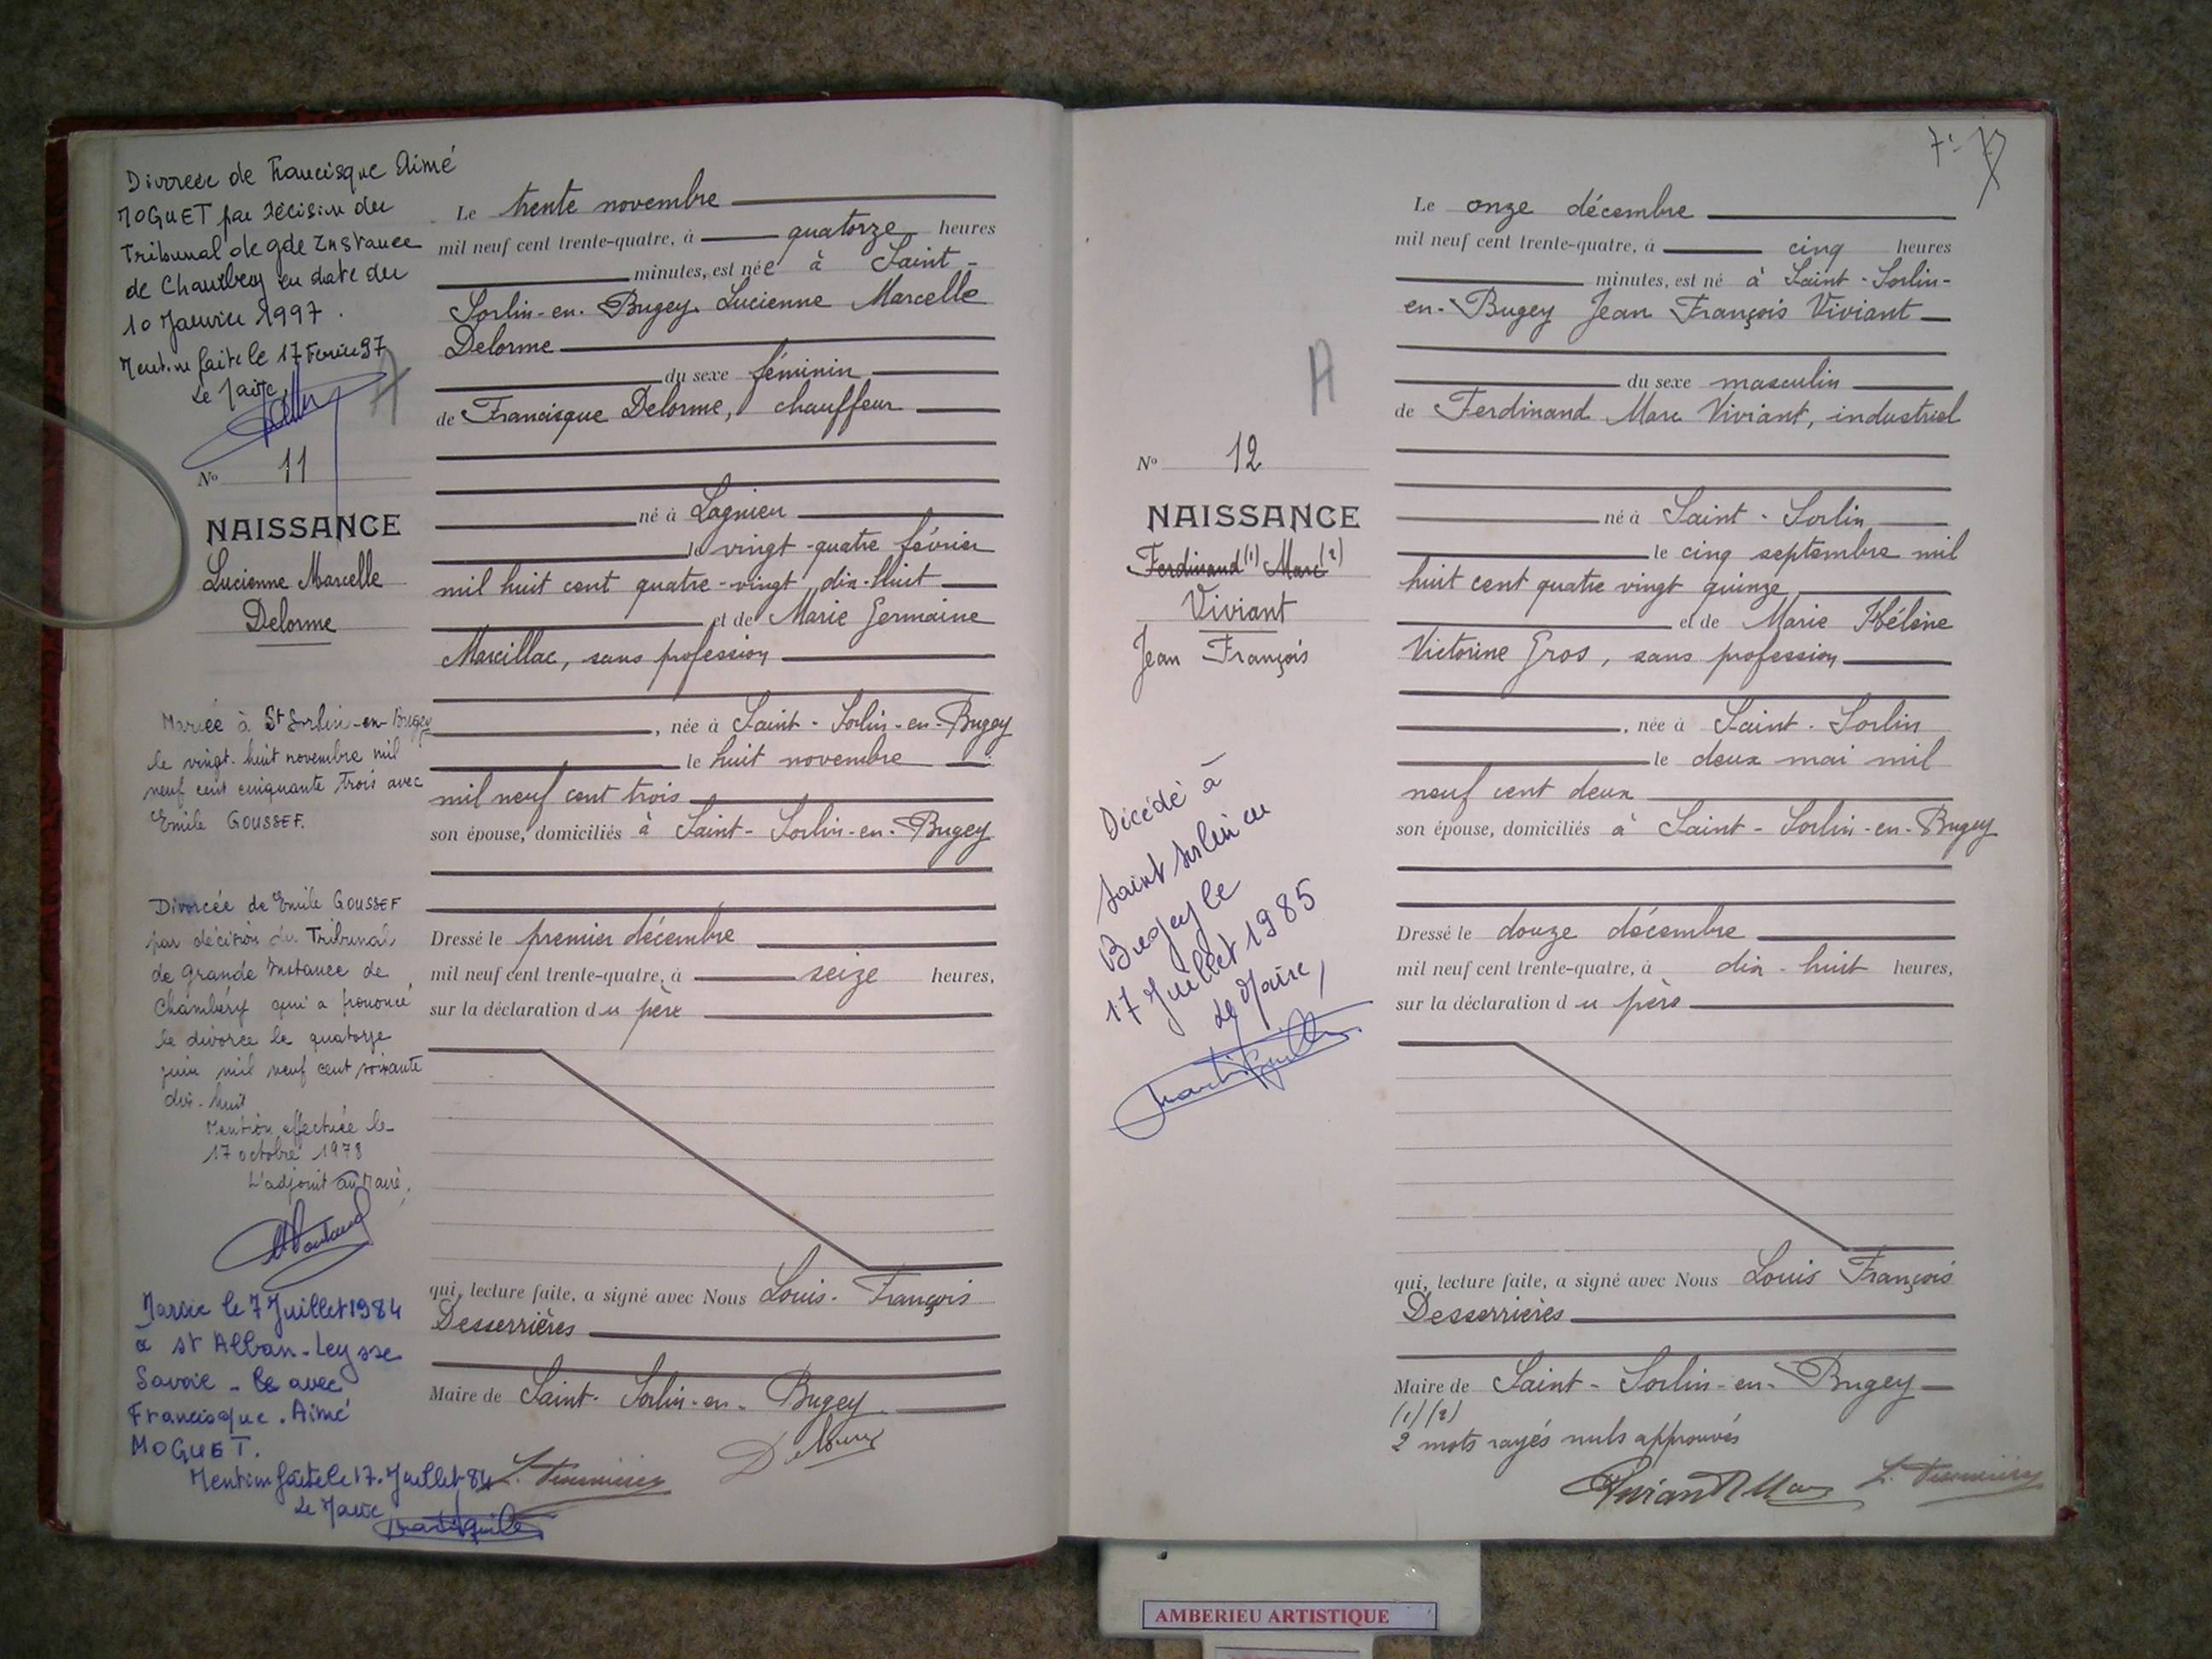 Divorcée de Francisque Aimé
MOGUET par décision du
Tribunal de gde Instance
de Chambéry en date du
10 Janvier 1997.
Mention faite le 17 Fevrier 97
Le Maire,
A
N° 11
NAISSANCE
Lucienne Marcelle
Delorme
Mariée à St Sorlin-en-Bugey
le vingt-huit novembre mil
neuf cent cinquante trois avec
Emile GOUSSEF.
Divorcée de Emile GOUSSEF
par décision du Tribunal
de Grande Instance de
Chambéry qui a prononcé
le divorce le quatorze
juin mil neuf cent soixante
dix-huit
Mention effectuée le
17 octobre 1978
L'adjoint au Maire,
Mariée le 7 Juillet 1984
à St Alban-Leysse
Savoie - le avec
Francisque. Aimé
MOGUET.
Mention faite le 17. Juillet 84
Le Maire
Le trente novembre
mil neuf cent trente-quatre, à quatorze heures
minutes, est née à Saint-
Sorlin-en-Bugey Lucienne Marcelle
Delorme
du sexe féminin
de Francisque Delorme, chauffeur
né à Lagnieu
le vingt-quatre février
mil huit cent quatre-vingt dix-huit
et de Marie Germaine
Marcillac, sans profession
, née à Saint-Sorlin-en-Bugey
le huit novembre
mil neuf cent trois
son épouse, domiciliés à Saint-Sorlin-en-Bugey
Dressé le premier décembre
mil neuf cent trente-quatre, à seize heures,
sur la déclaration du père
qui, lecture faite, a signé avec Nous Louis-François
Desserrières
Maire de Saint-Sorlin-en-Bugey
Delorme
A
N° 12
NAISSANCE
Ferdinand (1) Marc (2)
Viviant
Jean François
Décédé à
Saint Sorlin en
Bugey le
17 Juillet 1985
Le Maire,
Le onze décembre
mil neuf cent trente-quatre, à cinq heures
minutes, est né à Saint-Sorlin-
en-Bugey Jean François Viviant
du sexe masculin
de Ferdinand Marc Viviant, industriel
né à Saint-Sorlin
le cinq septembre mil
huit cent quatre vingt quinze
et de Marie Hélène
Victorine Gros, sans profession
, née à Saint-Sorlin
le deux mai mil
neuf cent deux
son épouse, domiciliés à Saint-Sorlin-en-Bugey
Dressé le douze décembre
mil neuf cent trente-quatre, à dix-huit heures,
sur la déclaration du père
qui, lecture faite, a signé avec Nous Louis François
Desserrières
Maire de Saint-Sorlin-en-Bugey
(1) (2)
2 mots rayés nuls approuvés
AMBERIEU ARTISTIQUE